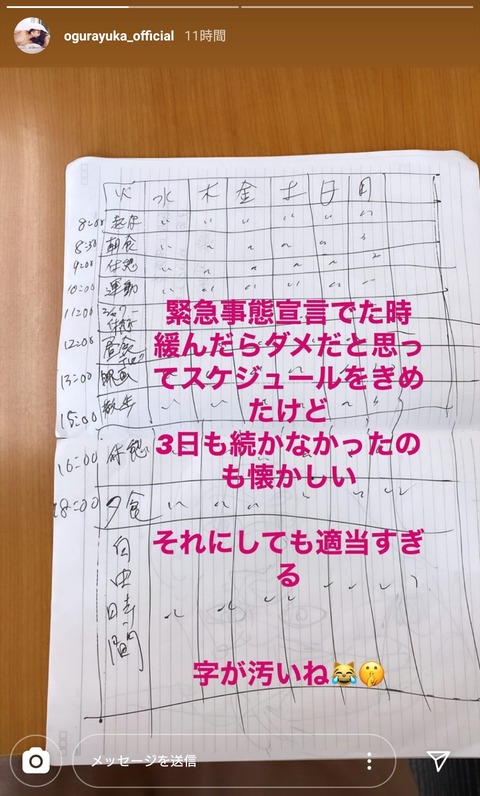 ogurayuka_official 11時間
火 水 木 金 土 日 月
8:00 起床
8:30 朝食
9:00 休憩
10:00 運動
11:00
12:00 昼食
13:00 映画
15:00 散歩
16:00 休憩
18:00 夕食
自由時間
緊急事態宣言でた時
緩んだらダメだと思っ
てスケジュールをきめ
たけど
3日も続かなかったの
も懐かしい
それにしても適当すぎ
る
字が汚いね😹🤫
メッセージを送信